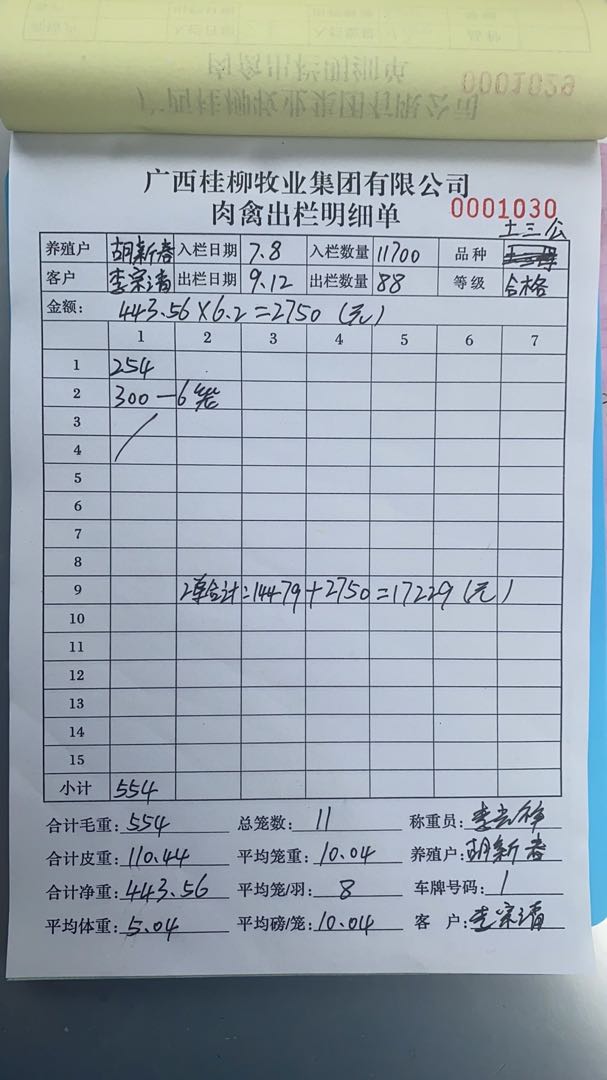 0001029
广西桂柳牧业集团有限公司
肉禽出栏明细单
0001030
土三公
养殖户 胡新春 入栏日期 7.8 入栏数量 11700 品种
客户 李宗清 出栏日期 9.12 出栏数量 88 等级 合格
金额: 443.56×6.2=2750(元)
1 2 3 4 5 6 7
1 254
2 300—6笼
3
4
5
6
7
8
9 2单合计:14479+2750=17229(元)
10
11
12
13
14
15
小计 554
合计毛重: 554 总笼数: 11 称重员:
合计皮重: 110.44 平均笼重: 10.04 养殖户: 胡新春
合计净重: 443.56 平均笼/羽: 8 车牌号码: 1
平均体重: 5.04 平均磅/笼: 10.04 客户: 李宗清